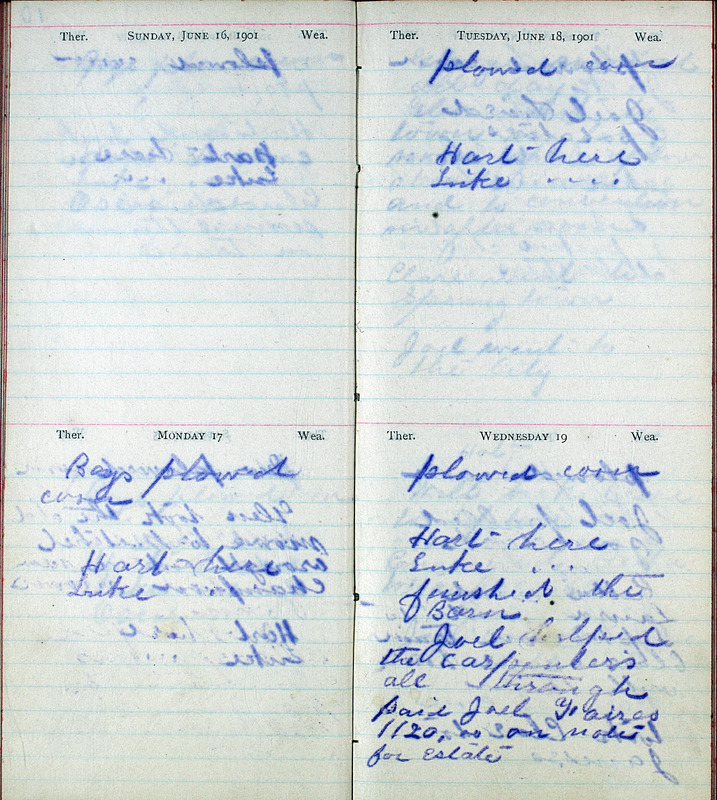 Ther. SUNDAY, JUNE 16, 1901 Wea.
Ther. MONDAY 17 Wea.
Boys plowed
corn
Hart here
Luke
Ther. TUESDAY, JUNE 18, 1901 Wea.
plowed corn
Hart here
Luke . . . .
Ther. WEDNESDAY 19 Wea.
plowed corn
Hart here
Luke . . .
finished the
Barn
Joel helped
the carpenters
all through
paid Joel
1120, on note
for Estate